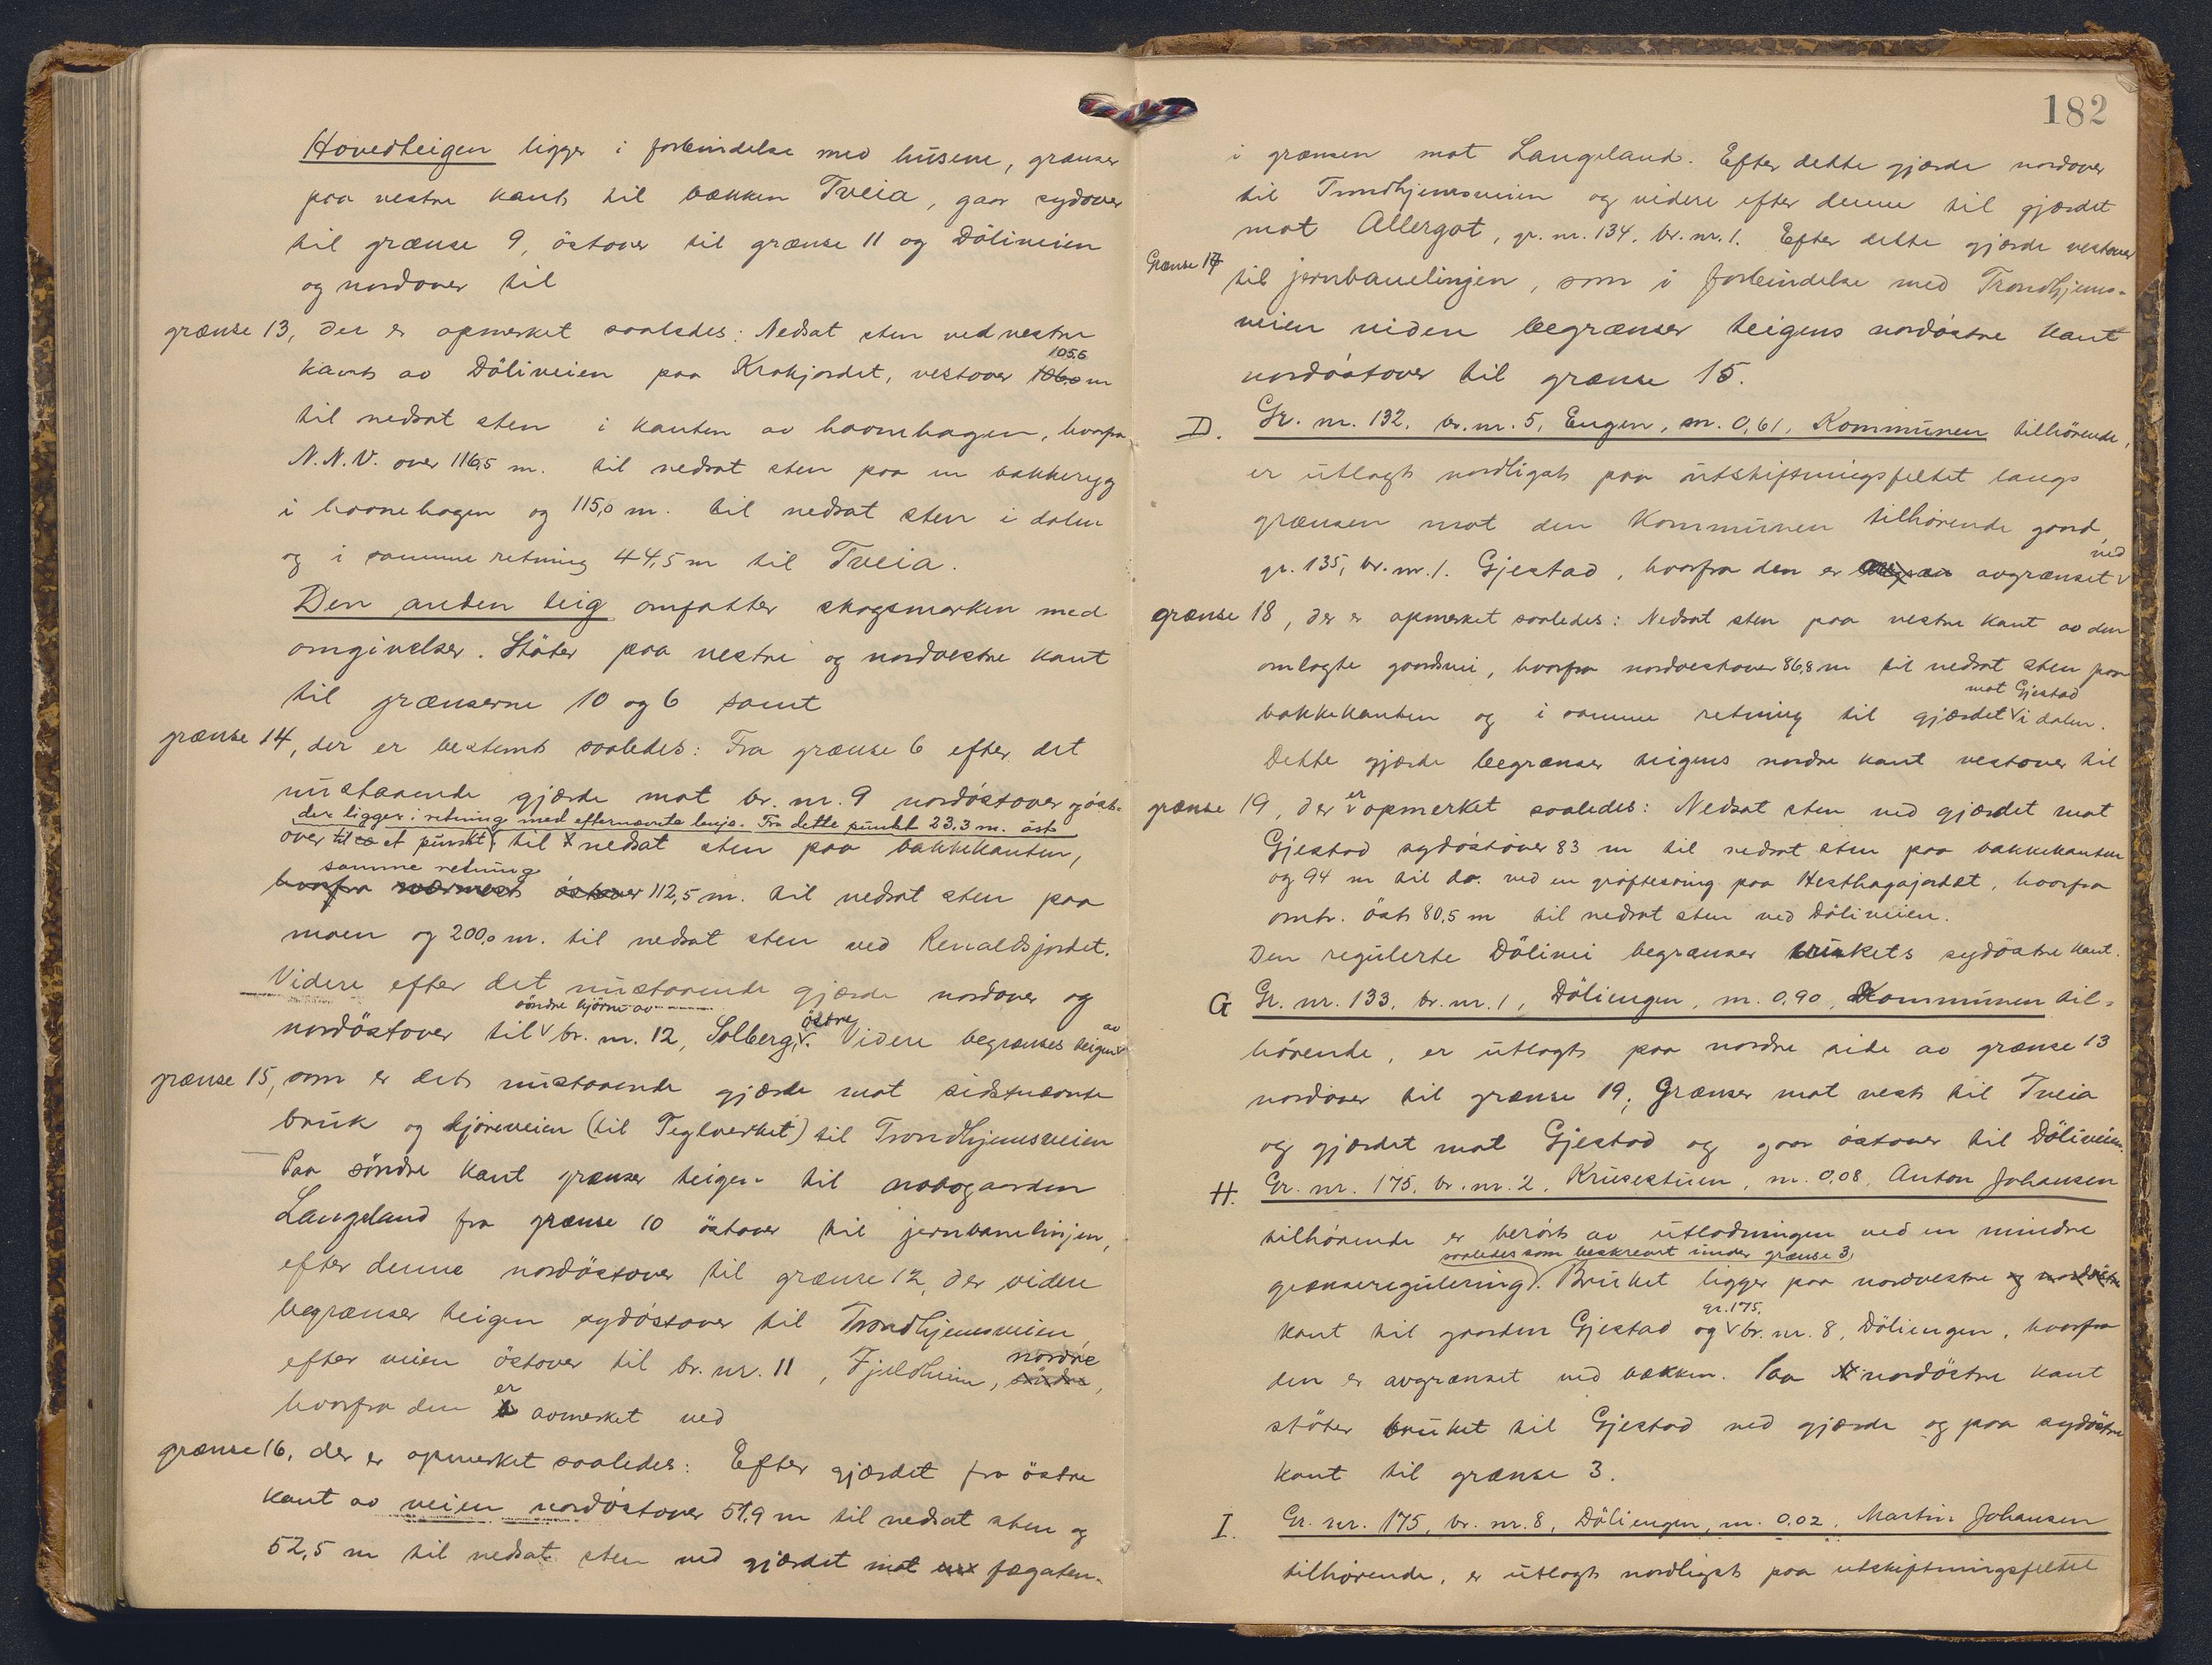 Hovedteigen ligger i forbindelse med husene, grænser
paa vestre kant til bækken Tveia, gaar sydover
til grænse 9, östover til grænse 11 og Döliveien
og nordover til
grænse 13, der er opmerket saaledes: Nedsat sten ved vestre
105,6
kant av Döliveien paa Krokjordet, vestover 106,0 m
til nedsat sten i kanten av havnehagen, hvorfra
N.N.V. over 116,5 m. til nedsat sten paa en bakkeryg
i havnehagen og 115,0 m. til nedsat sten i dalen
og i samme retning 44,5 m til Tveia.
Den anden teig omfatter skogsmarken med
omgivelser. Stöter paa vestre og nordvestre kant
til grænserne 10 og 6 samt
grænse 14, der er bestemt saaledes: Fra grænse 6 efter det
nustaaende gjærde mot br. nr. 9 nordöstover og öst-
der ligger i retning med efternævnte linje. Fra dette punkt 23.3 m. öst
over til et punkt til nedsat sten paa bakkekanten,
samme retning
hvorfra nærmest östover 112,5 m. til nedsat sten paa
moen og 200,0 m. til nedsat sten ved Renaldsjordet.
Videre efter det nustaaende gjærde nordover og
söndre hjörne av
nordöstover til br. nr. 12, Solberg, östre. Videre begrænses teigen av
grænse 15, som er det nustaaende gjærde mot sidstnævnte
bruk og kjöreveien (til Teglverket) til Trondhjemsveien
Paa söndre kant grænser teigen til nabogaarden
Langeland fra grænse 10 östover til jernbanelinjen,
efter denne nordöstover til grænse 12, der videre
begrænser teigen sydöstover til Trondhjemsveien,
efter veien östover til br. nr. 11, Fjeldheim, nordre söndre,
hvorfra den er avmerket ved
grænse 16, der er opmerket saaledes: Efter gjærdet fra östre
kant av veien nordöstover 57,9 m til nedsat sten og
52,5 m til nedsat sten ved gjærdet mot fægaten
182
i grænsen mot Langeland. Efter dette gjærde nordover
til Trondhjemsveien og videre efter denne til gjærdet
mot Allergot, gr. nr. 134, br. nr. 1. Efter dette gjærde vestover
Grænse 17
til jernbanelinjen, som i forbindelse med Trondhjems-
veien viden begrænser teigens nordöstre kant
nordöstover til grænse 15.
D. Gr. nr. 132, br. nr. 5, Engen, m. 0,61, Kommunen tilhörende,
er utlagt nordligst paa utskiftningsfeltet langs
grænsen mot den Kommunen tilhörende gaard,
gr. 135, br. nr. 1. Gjestad, hvorfra den er avgrænset ved
grænse 18, der er opmerket saaledes: Nedsat sten paa vestre kant av den
omlagte gaardsvei, hvorfra nordvestover 86,8 m til nedsat sten paa
mot Gjestad
bakkekanten og i samme retning til gjærdet i dalen.
Dette gjærde begrænser teigens nordre kant vestover til
grænse 19, der er opmerket saaledes: Nedsat sten ved gjærdet mot
Gjestad sydöstover 83 m til nedsat sten paa bakkekanten
og 94 m til do. ved en gröftesving paa Hesthagajordet, hvorfra
omtr. öst 80,5 m til nedsat sten ved Döliveien.
Den regulerte Dölivei begrænser brukets sydöstre kant.
G Gr. nr. 133, br. nr. 1, Döliengen, m. 0,90, Kommunen til-
hörende, er utlagt paa nordre side av grænse 13
nordover til grænse 19; Grænser mot vest til Tveia
og gjærdet mot Gjestad og gaar östover til Döliveien.
H. Gr. nr. 175, br. nr. 2, Krusestuen, m. 0,08, Anton Johansen
tilhörende er berört av utlodningen ved en mindre
saaledes som beskrevet under grænse 3
grænseregulering. Bruket ligger paa nordvestre og nordöstre
gr. 175,
kant til gaarden Gjestad og br. nr. 8, Döliengen, hvorfra
den er avgrænset ved bækken. Paa nordöstre kant
stöter bruket til Gjestad ved gjærde og paa sydöstre
kant til grænse 3.
I. Gr. nr. 175, br. nr. 8, Döliengen, m. 0,02, Martin Johansen
tilhörende, er utlagt nordligst paa utskiftningsfeltet